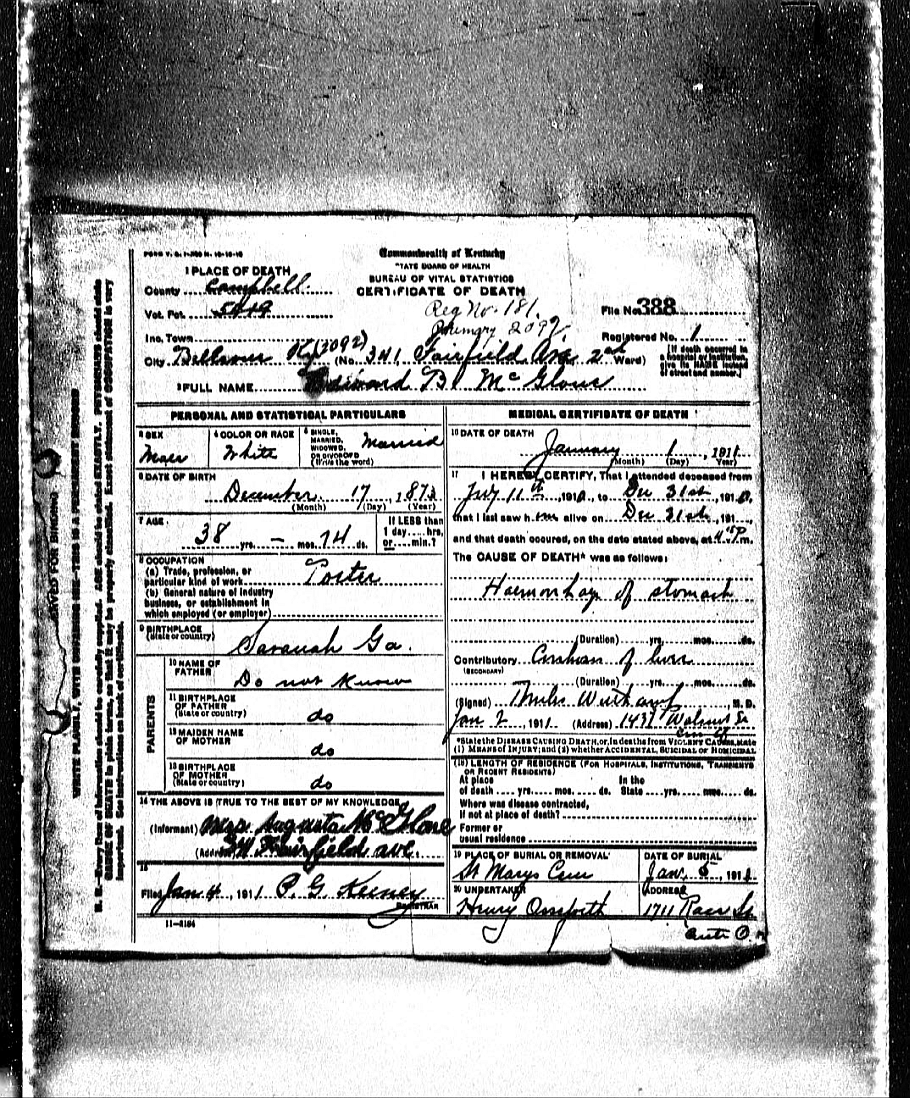 Commonwealth of Kentucky
STATE BOARD OF HEALTH
BUREAU OF VITAL STATISTICS
CERTIFICATE OF DEATH
1 PLACE OF DEATH
County Campbell
Vot. Pct. 5419
Reg No. 181
2092
File No. 388
Inc. Town
Registered No. 1
City Bellevue Ky (3092) (No. 341 Fairfield Ave 2nd Ward)
[If death occured in a hospital or institution, give its NAME instead of street and number.]
2 FULL NAME Edward B Mc Glone
PERSONAL AND STATISTICAL PARTICULARS
3 SEX
Male
4 COLOR OR RACE
White
5 SINGLE, MARRIED, WIDOWED OR DIVORCED (Write the word)
Married
6 DATE OF BIRTH
December 17, 187
(Month) (Day) (Year)
7 AGE
38 yrs. – mos. 14 ds.
If LESS than 1 day.... hrs. or.... min.?
8 OCCUPATION
(a) Trade, profession, or particular kind of work Porter
(b) General nature of industry business, or establishment in which employed (or employer)
9 BIRTHPLACE
(State or country)
Savanah Ga.
PARENTS
10 NAME OF FATHER
Do not Know
11 BIRTHPLACE OF FATHER
(State or country)
do
12 MAIDEN NAME OF MOTHER
do
13 BIRTHPLACE OF MOTHER
(State or country)
do
14 THE ABOVE IS TRUE TO THE BEST OF MY KNOWLEDGE
(Informant) Mrs Augusta McGlone
(Address) 341 Fairfield ave.
15
Filed Jan 4, 1911 P. G. Keeney
REGISTRAR
11-3184
MEDICAL CERTIFICATE OF DEATH
16 DATE OF DEATH
January 1 1911
(Month) (Day) Year)
17 I HEREBY CERTIFY, That I attended deceased from
July 11th, 1910, to Dec 31st, 1910,
that I last saw him alive on Dec 31st, 191
and that death occured, on the date stated above, at m.
The CAUSE OF DEATH* was as follows:
Haemorrhage of stomach
(Duration) yrs. mos. ds.
Contributory Cirrhosis of liver
(SECONDARY)
(Duration) yrs. mos. ds.
(Signed) M. D.
Jan 2 1911 (Address) 1431 Walnut St
*State the DISEASE CAUSING DEATH, or, in deaths from VIOLENT CAUSES, state (1) MEANS OF INJURY; and (2) whether ACCIDENTAL, SUICIDAL or HOMICIDAL
(18) LENGTH OF RESIDENCE (FOR HOSPITALS, INSTITUTIONS, TRANSIENTS OR RECENT RESIDENTS)
At place of death yrs. mos. ds. In the State yrs. mos. ds.
Where was disease contracted, if not at place of death?
Former or usual residence
19 PLACE OF BURIAL OR REMOVAL
St Marys Cem
DATE OF BURIAL
Jan. 5, 1911
20 UNDERTAKER
Henry
ADDRESS
1711 Race St
Cinti O.
WRITE PLAINLY, WITH UNFADING INK—THIS IS A PERMANENT RECORD
N. B.—Every item of information should be carefully supplied. AGE should be stated EXACTLY. PHYSICIANS should state
CAUSE OF DEATH in plain terms, so that it may be properly classified. Exact statement of OCCUPATION is very
important. See instructions on back of certificate.